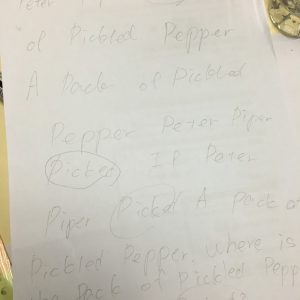 Peter
of Pickled Pepper
A Pack of Pickled
Pepper Peter Piper
Picked If Peter
Piper Picked A Pack of
Pickled Pepper, Where is
the Pack of Pickled Pepp